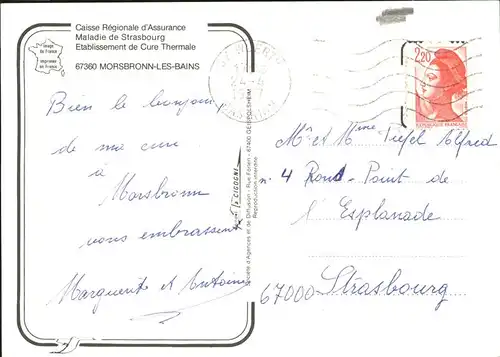 Caisse Régionale d'Assurance
Maladie de Strasbourg
Etablissement de Cure Thermale
67360 MORSBRONN-LES-BAINS
Image
de France
Imprimé
en France
Bien le bonjour
de ma cure
à
Morsbronn
vous embrassent
Marguerite et Antoine
LA CIGOGNE
Société d'Agences et de Diffusion - Rue Forlen - 67400 GEISPOLSHEIM
Reproduction interdite
2,20
REPUBLIQUE FRANÇAISE
Mr et Mme Tifel Alfred
n. 4 Rond-Point de
l'Esplanade
67000 Strasbourg